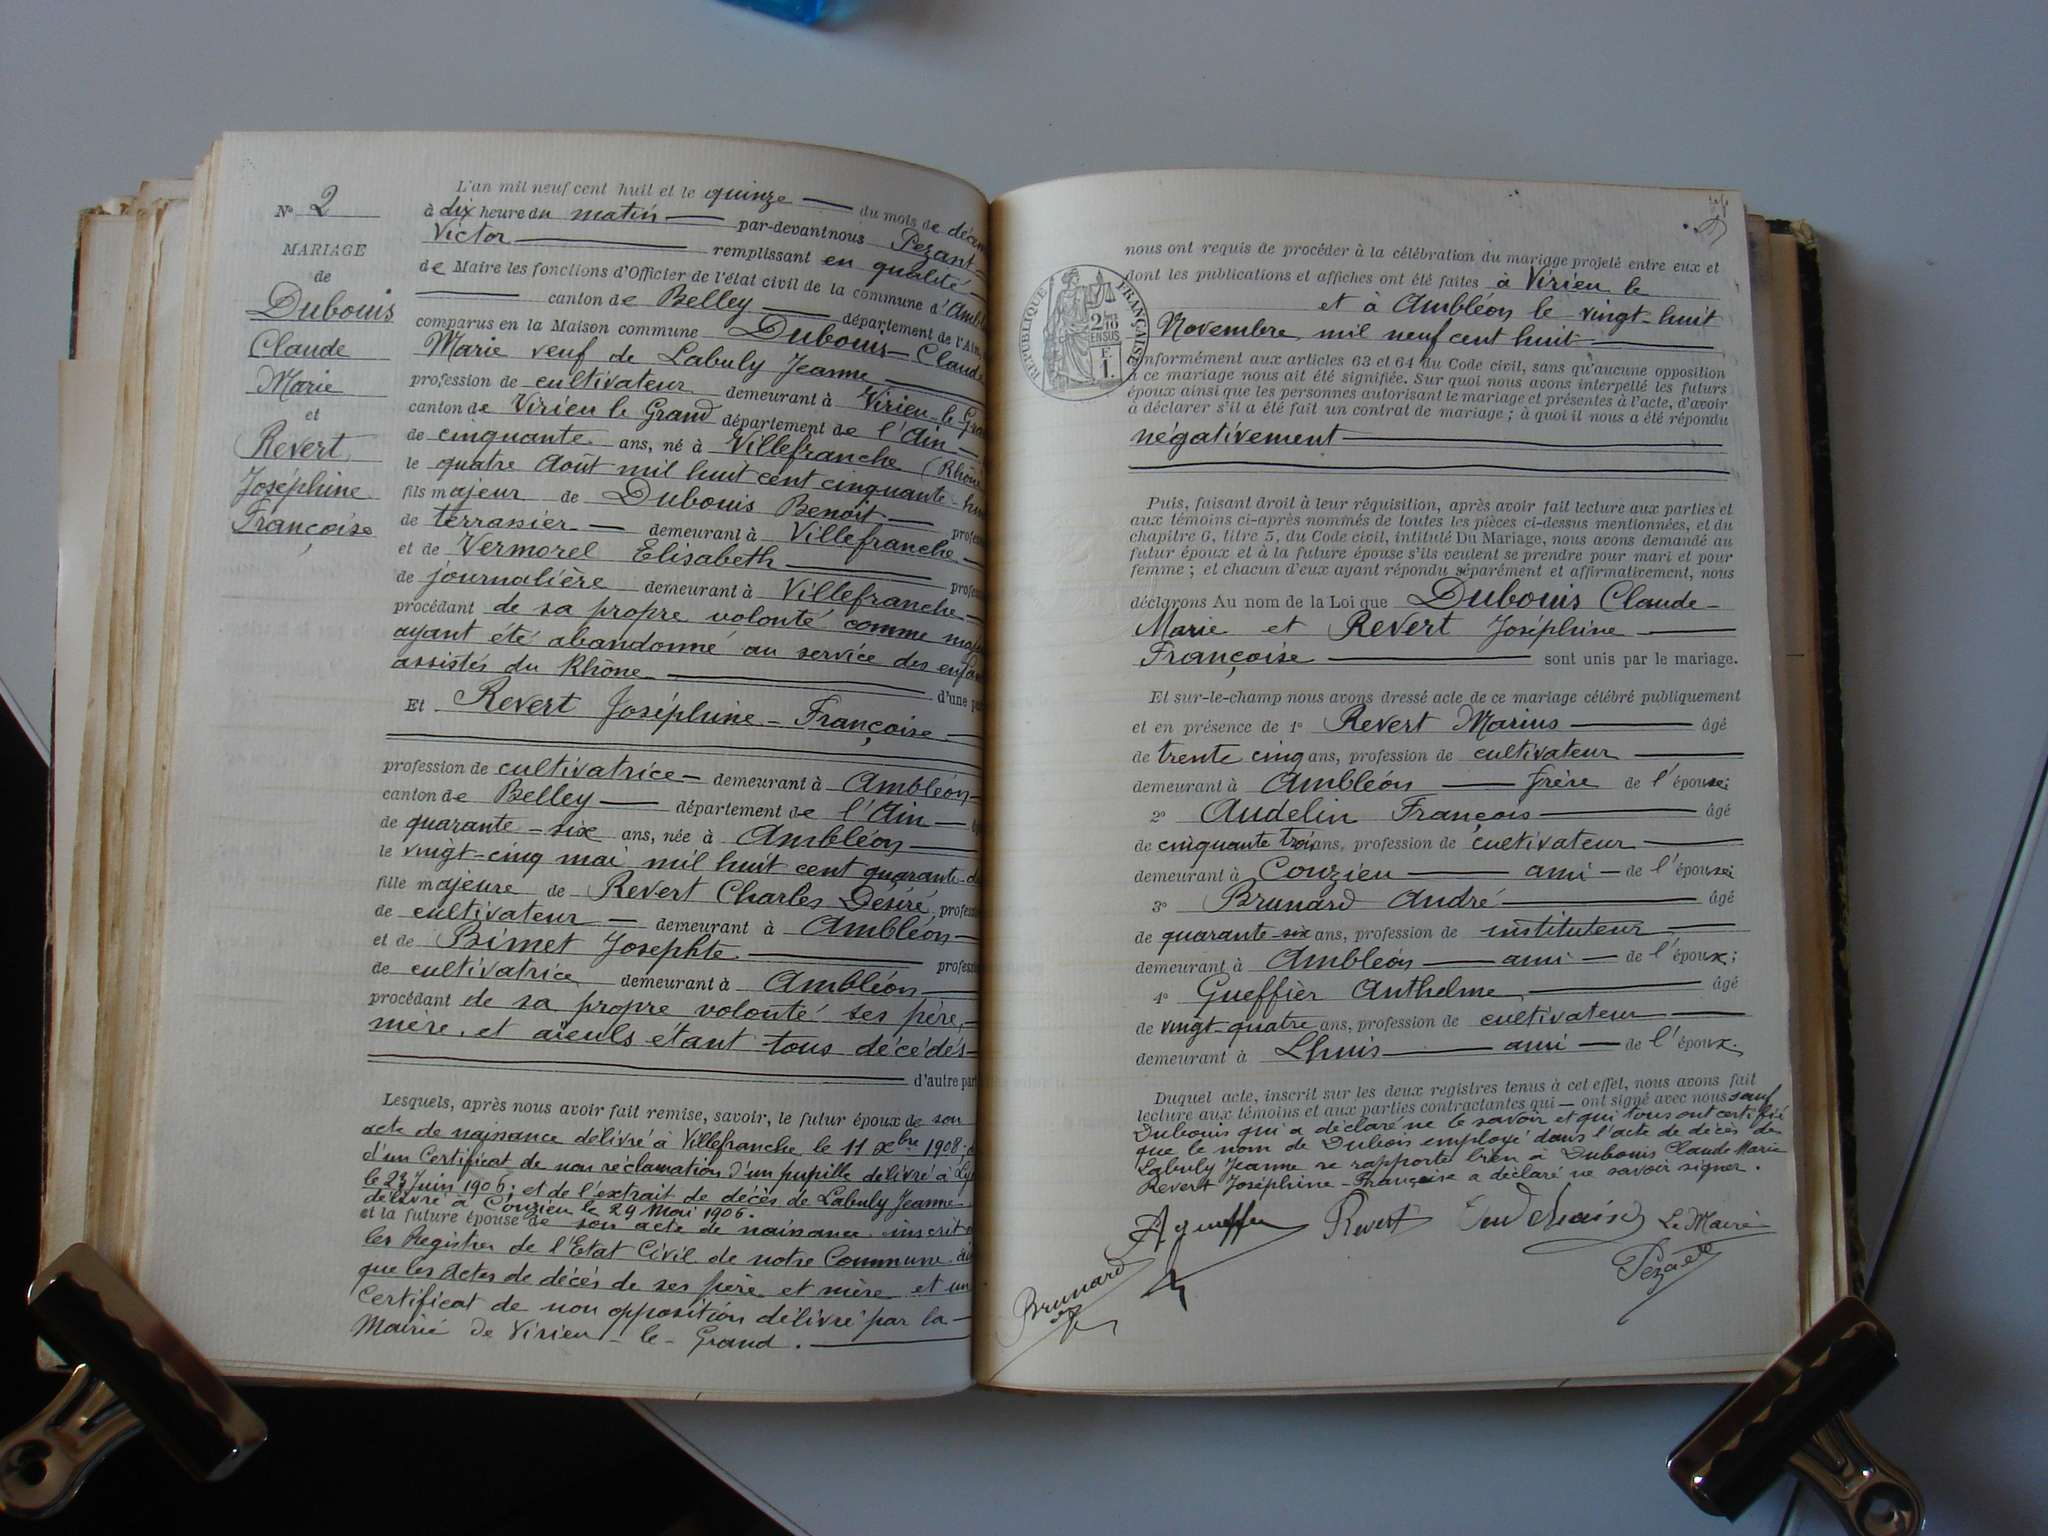 N° 2
MARIAGE
de
Dubouis
Claude
Marie
et
Revert
Joséphine
Françoise
L'an mil neuf cent huit et le quinze du mois de décem
à dix heure du matin par-devant nous Pezant
Victor remplissant en qualité
de Maire les fonctions d'Officier de l'état civil de la commune d'Amblé
canton de Belley département de l'Ain,
comparus en la Maison commune Dubouis Claude
Marie veuf de Labuly Jeanne
profession de cultivateur demeurant à Virieu-le-Gra
canton de Virieu le Grand département de l'Ain
de cinquante ans, né à Villefranche (Rhône
le quatre Août mil huit cent cinquante-hui
fils majeur de Dubouis Benoit profess
de terrassier demeurant à Villefranche
et de Vermorel Elisabeth profess
de journalière demeurant à Villefranche
procédant de sa propre volonté comme maje
ayant été abandonné au service des enfan
assistés du Rhône d'une pa
Et Revert Joséphine - Françoise
profession de cultivatrice demeurant à Ambléon
canton de Belley département de l'Ain
de quarante-six ans, née à Ambléon
le vingt-cinq mai mil huit cent quarante-
fille majeure de Revert Charles Désiré profess
de cultivateur demeurant à Ambléon
et de Bimet Josephte profess
de cultivatrice demeurant à Ambléon
procédant de sa propre volonté ses père,
mère, et aïeuls étant tous décédés
d'autre part
Lesquels, après nous avoir fait remise, savoir, le futur époux de son
acte de naissance délivré à Villefranche le 11 Xbre 1908;
d'un Certificat de non réclamation d'un pupille délivré à Ly
le 23 Juin 1906; et de l'extrait de décès de Labuly Jeanne
délivré à Couzieu le 29 Mai 1906.
et la future épouse de son acte de naissance inscrit
les Registres de l'Etat Civil de notre Commune
que les Actes de décès de ses père et mère et un
Certificat de non opposition délivré par la
Mairie de Virieu-le-Grand.
nous ont requis de procéder à la célébration du mariage projeté entre eux et
dont les publications et affiches ont été faites à Virieu le
et à Ambléon le vingt-huit
Novembre mil neuf cent huit
conformément aux articles 63 et 64 du Code civil, sans qu'aucune opposition
à ce mariage nous ait été signifiée. Sur quoi nous avons interpellé les futurs
époux ainsi que les personnes autorisant le mariage et présentes à l'acte, d'avoir
à déclarer s'il a été fait un contrat de mariage; à quoi il nous a été répondu
négativement
RÉPUBLIQUE FRANÇAISE
2/10
EN SUS
F.
1.
Puis, faisant droit à leur réquisition, après avoir fait lecture aux parties et
aux témoins ci-après nommés de toutes les pièces ci-dessus mentionnées, et du
chapitre 6, titre 5, du Code civil, intitulé Du Mariage, nous avons demandé au
futur époux et à la future épouse s'ils veulent se prendre pour mari et pour
femme; et chacun d'eux ayant répondu séparément et affirmativement, nous
déclarons Au nom de la Loi que Dubouis Claude-
Marie et Revert Joséphine
Françoise sont unis par le mariage.
Et sur-le-champ nous avons dressé acte de ce mariage célébré publiquement
et en présence de 1° Revert Marius âgé
de trente cinq ans, profession de cultivateur
demeurant à Ambléon frère de l'épouse;
2° Audelin François âgé
de cinquante trois ans, profession de cultivateur
demeurant à Couzieu ami de l'épouse;
3° Brunard André âgé
de quarante-six ans, profession de instituteur
demeurant à Ambléon ami de l'époux;
4° Gueffier Anthelme âgé
de vingt-quatre ans, profession de cultivateur
demeurant à Lhuis ami de l'époux.
Duquel acte, inscrit sur les deux registres tenus à cet effet, nous avons fait
lecture aux témoins et aux parties contractantes qui ont signé avec nous sauf
Dubouis qui a déclaré ne le savoir et qui tous ont certifié
que le nom de Dubois employé dans l'acte de décès de
Labuly Jeanne se rapporte bien à Dubouis Claude Marie
Revert Joséphine-Françoise a déclaré ne savoir signer.
Agueffier Revert Le Maire
Brunard Pezant